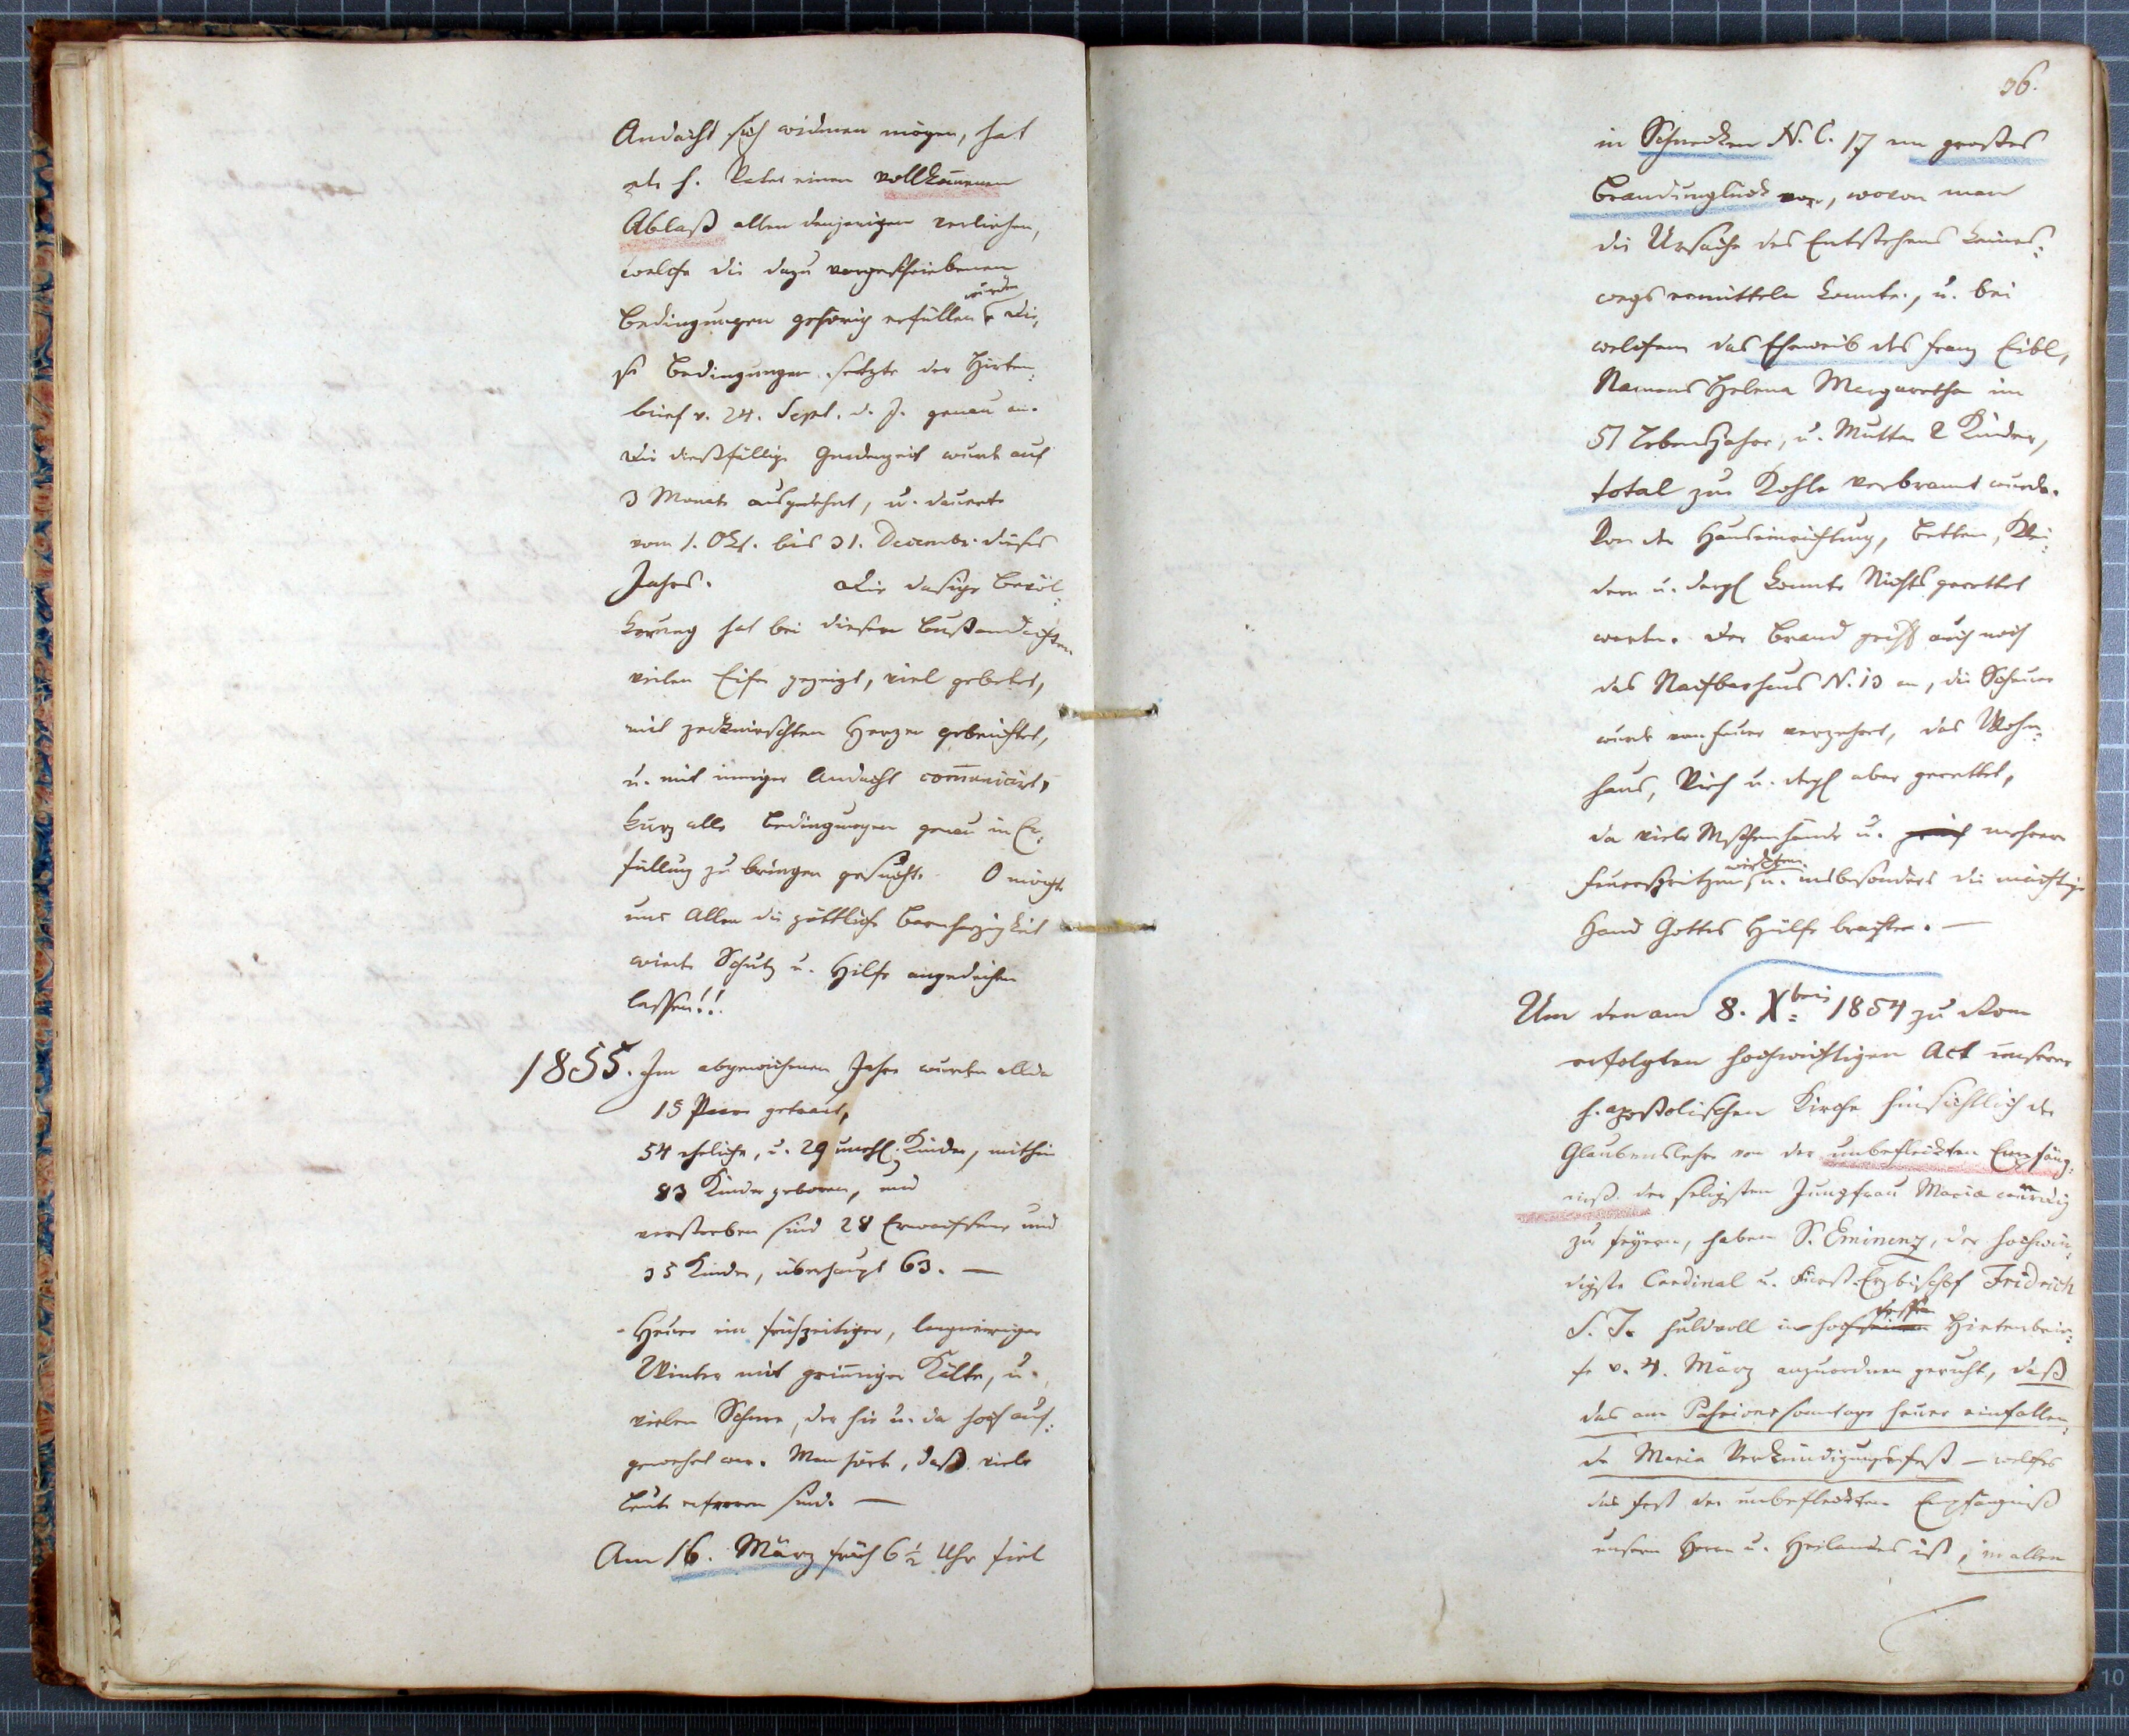 Andacht sich widmen mögen, hat
der h. Vater einen vollkom̅enen
Ablaß allen denjenigen verliehen,
welche die dazu vorgeschriebenen
würden
Bedingungen gehörig erfüllen. Die,
se Bedingungen setzte der Hirten:
brief v. 24. Sept. d. J. genau an.
Die dießfällige Gnadenzeit wurde auf
3 Monate ausgedehnt, u. dauerte
vom 1. Okt. bis 31. Decembr. dieses
Jahrs. Die dasige Bevöl:
kerung hat bei diesen Bußandachten
vielen Eifer gezeigt, viel gebetet,
mit zerknirschten Herzen gebeichtet,
u. mit inniger Andacht com̅unicirt,
kurz alle Bedingungen genau in Er:
füllung zu bringen gesucht. O möcht
uns Allen die göttliche Barmherzigkeit
wieder Schutz u. Hilfe angedeihen
lassen!!
1855. Im abgewichenen Jahre wurden allda
15 Paare getraut,
54 eheliche, u. 29 unehl. Kinder, mithin
83 Kinder geboren, und
verstorben sind 28 Erwachsene und
35 Kinder, überhaupt 63. —
Heuer ein frühzeitiger, langwieriger
Winter mit grim̅iger Kälte, u.
vielen Schnee, der hie u. da hoch auf:
gewehet war. Man hört, daß viele
Leute erfroren sind. —
Am 16. März früh 6 ½ Uhr fiel
36.
in Schnecken N. C. 17 ein großes
Brandunglück vor, wovon man
die Ursache des Entstehens keines:
wegs ermitteln konnte, u. bei
welchem das Eheweib des Franz Eibl,
Namens Helena Margaretha im
51 Lebensjahre, u. Mutter 2 Kinder,
total zur Kohle verbrannt wurde.
Von der Hauseinrichtung, Betten, Klei:
dern u. dergl konnte Nichts gerettet
werden. Der Brand griff auch noch
das Nachbarhaus N. 13 an, die Scheuer
wurde vom Feuer verzehrt, das Wohn:
haus, Vieh u. dergl aber gerettet,
da viele Mschenhände u. mehrere
wirkten
Feuerspritzen u. insbesonders die mächtige
Hand Gottes Hülfe brachten. —
Um den am 8. Xbris 1854 zu Rom
erfolgten hochwichtigen Act unserer
h. apostolischen Kirche hinsichtlich der
Glaubenslehre von der unbefleckten Empfäng:
niß der seligsten Jungfrau Maria würdig
zu feyern, haben S. Eminenz, der hochwür:
digste Cardinal u. Fürst-Erzbischof Fridrich
dessen
S. J. huldvoll in hoch Hirtenbrie:
fe v. 4. März anzuordnen geruht, daß
das am Passionssonntage heuer einfallen:
de Maria Verkündigungsfest — welches
das Fest der unbefleckten Empfängniß
unsern Herrn u. Heilandes ist, in allen